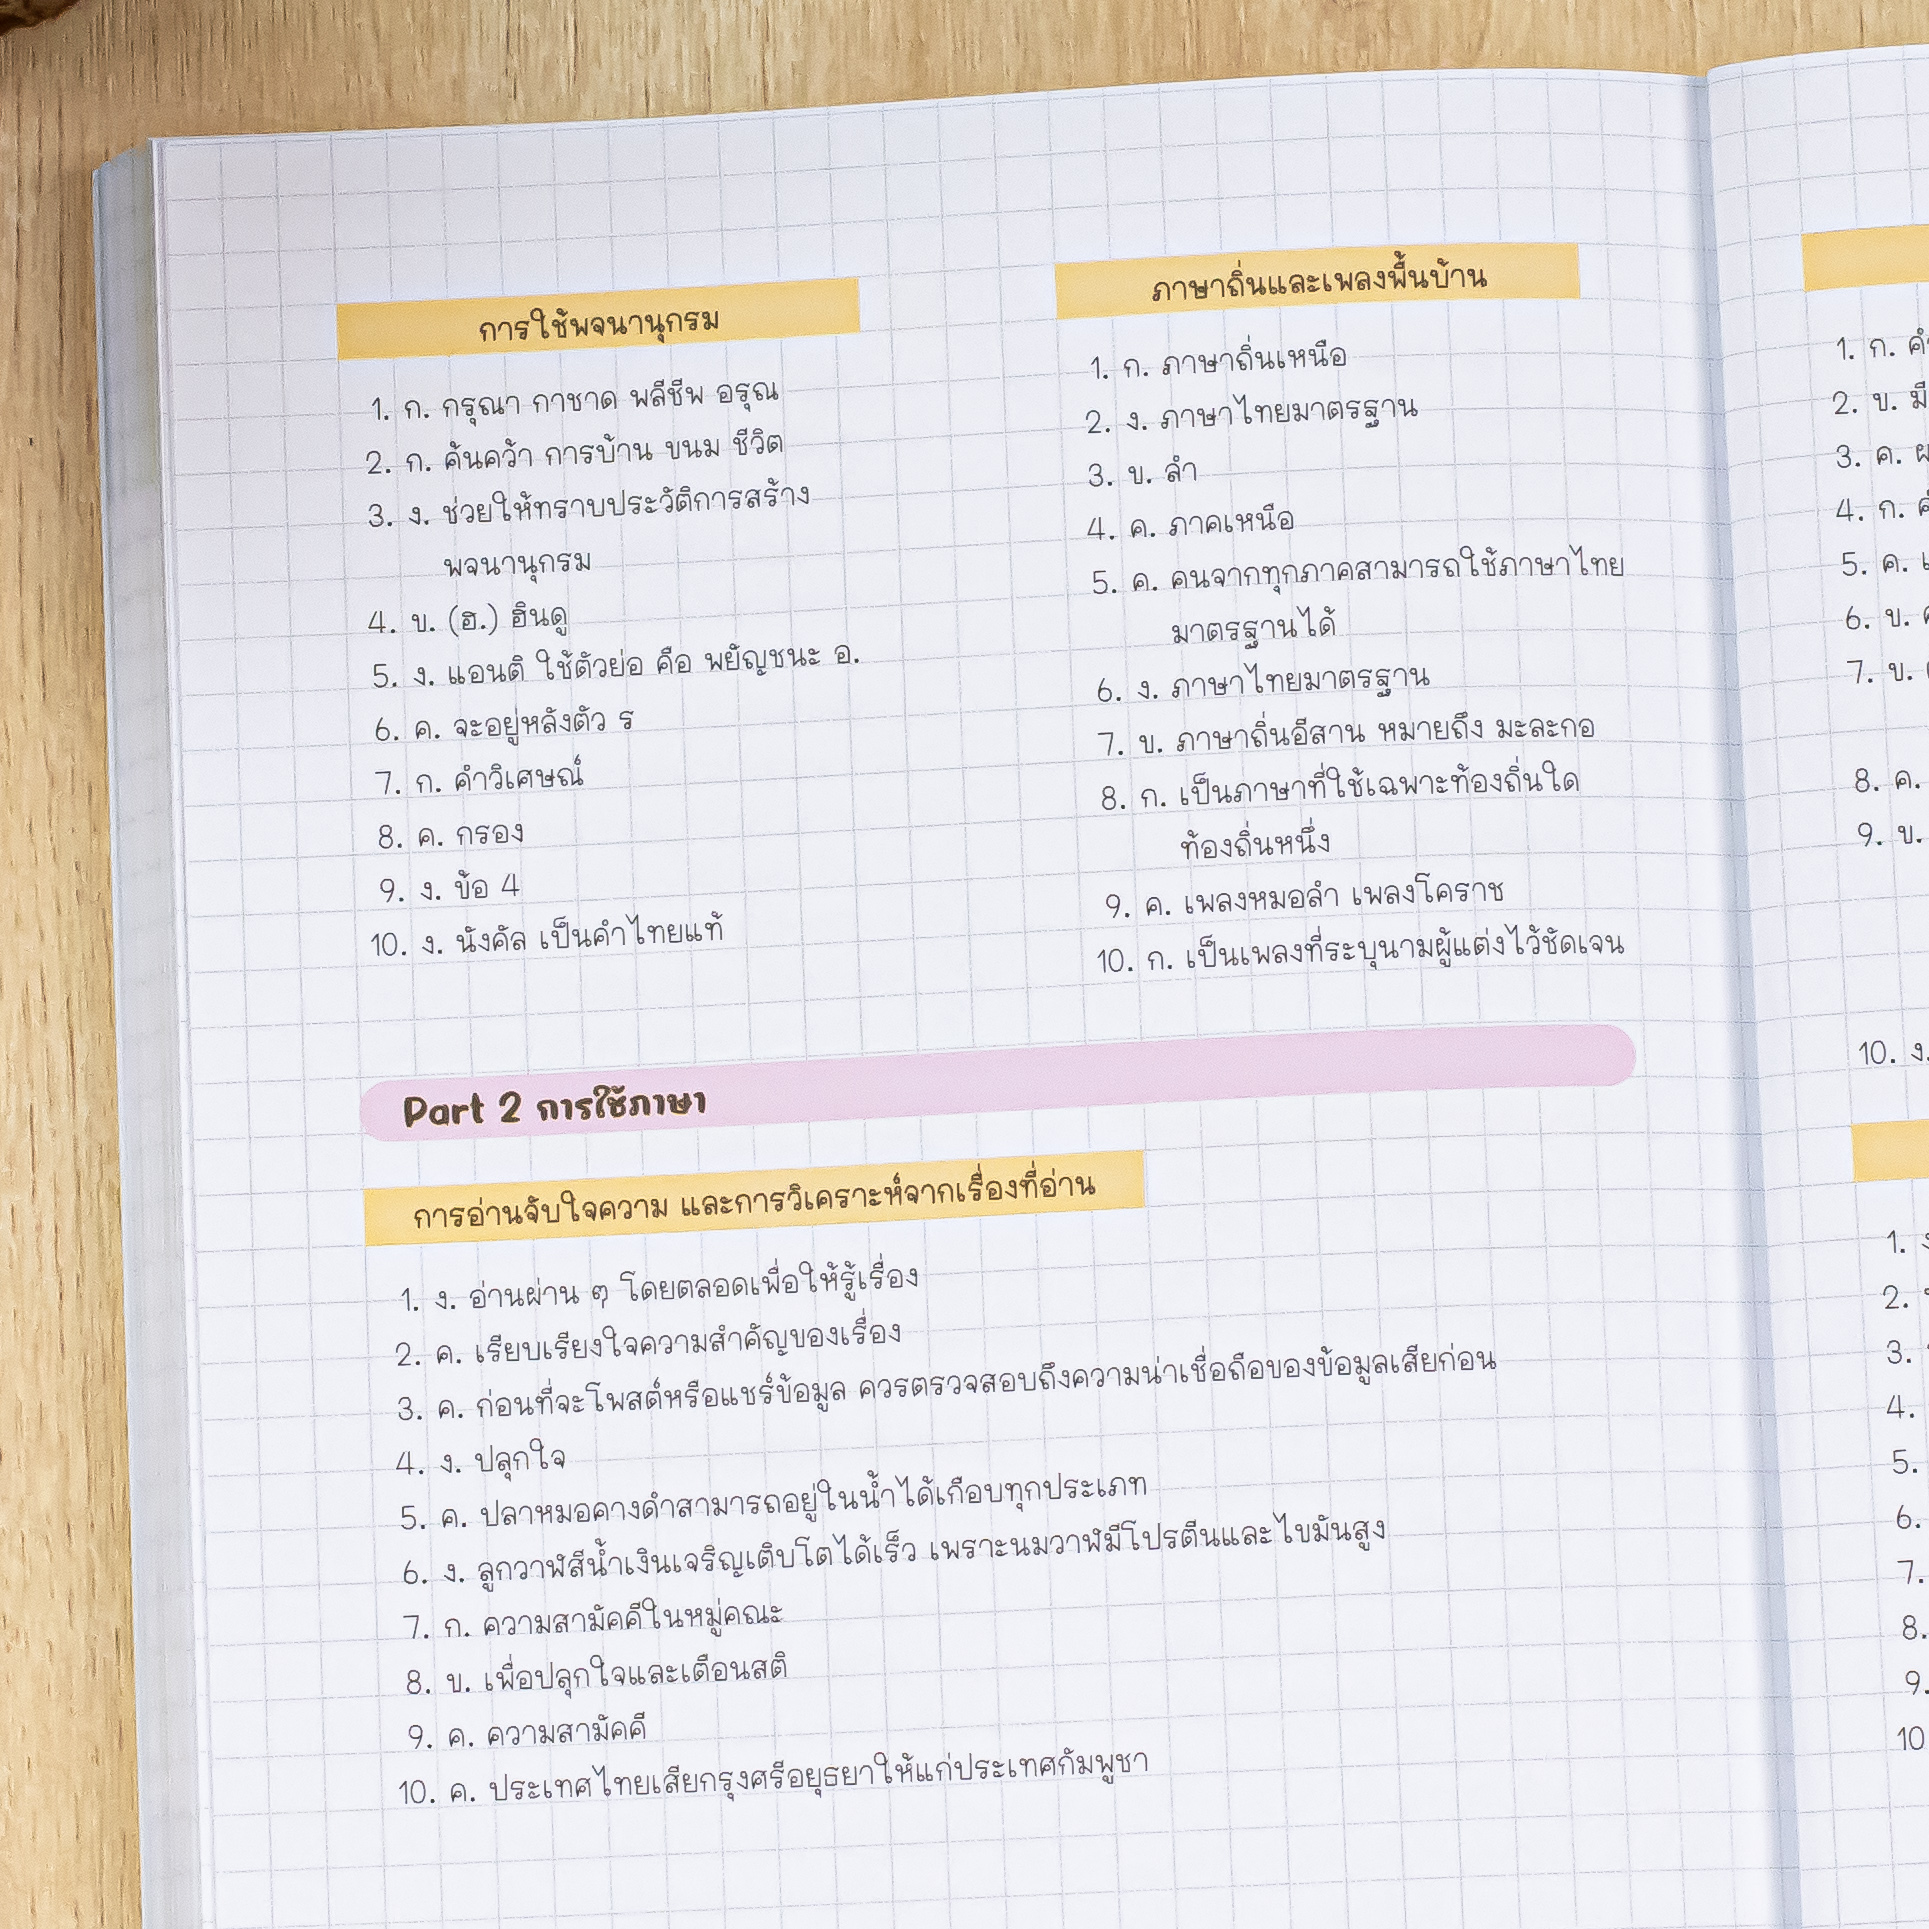 การใช้พจนานุกรม
1. ก. กรุณา กาชาด พลีชีพ อรุณ
2. ก. ค้นคว้า การบ้าน ขนม ชีวิต
3. ง. ช่วยให้ทราบประวัติการสร้าง
พจนานุกรม
4. ข. (ฮ.) ฮินดู
5. ง. แอนติ ใช้ตัวย่อ คือ พยัญชนะ อ.
6. ค. จะอยู่หลังตัว ร
7. ก. คำวิเศษณ์
8. ค. กรอง
9. ง. ข้อ 4
10. ง. นังคัล เป็นคำไทยแท้
ภาษาถิ่นและเพลงพื้นบ้าน
1. ก. ภาษาถิ่นเหนือ
2. ง. ภาษาไทยมาตรฐาน
3. ข. ลำ
4. ค. ภาคเหนือ
5. ค. คนจากทุกภาคสามารถใช้ภาษาไทย
มาตรฐานได้
6. ง. ภาษาไทยมาตรฐาน
7. ข. ภาษาถิ่นอีสาน หมายถึง มะละกอ
8. ก. เป็นภาษาที่ใช้เฉพาะท้องถิ่นใด
ท้องถิ่นหนึ่ง
9. ค. เพลงหมอลำ เพลงโคราช
10. ก. เป็นเพลงที่ระบุนามผู้แต่งไว้ชัดเจน
Part 2 การใช้ภาษา
การอ่านจับใจความ และการวิเคราะห์จากเรื่องที่อ่าน
1. ง. อ่านผ่าน ๆ โดยตลอดเพื่อให้รู้เรื่อง
2. ค. เรียบเรียงใจความสำคัญของเรื่อง
3. ค. ก่อนที่จะโพสต์หรือแชร์ข้อมูล ควรตรวจสอบถึงความน่าเชื่อถือของข้อมูลเสียก่อน
4. ง. ปลุกใจ
5. ค. ปลาหมอคางดำสามารถอยู่ในน้ำได้เกือบทุกประเภท
6. ง. ลูกวาฬสีน้ำเงินเจริญเติบโตได้เร็ว เพราะนมวาฬมีโปรตีนและไขมันสูง
7. ก. ความสามัคคีในหมู่คณะ
8. ข. เพื่อปลุกใจและเตือนสติ
9. ค. ความสามัคคี
10. ค. ประเทศไทยเสียกรุงศรีอยุธยาให้แก่ประเทศกัมพูชา
1. ก.
2. ข. มี
3. ค.
4. ก.
5. ค.
6. ข.
7. ข.
8. ค.
9. ข.
10. ง.
1.
2.
3.
4.
5.
6.
7.
8.
9.
10